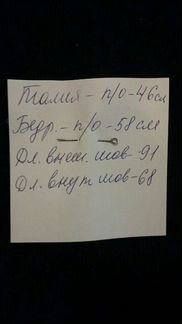 Талия - п/о - 46 см
Бедр. - п/о - 58 см
Дл. внеш. шов - 91
Дл. внут шов - 68